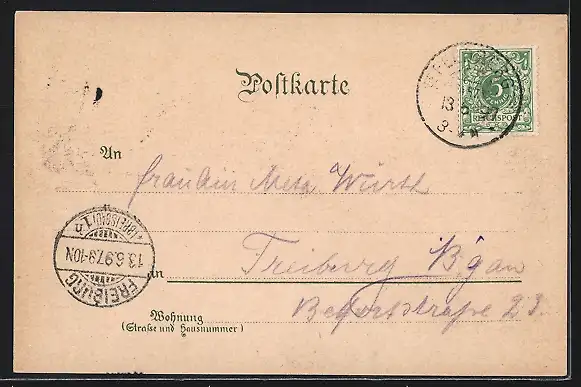 Postkarte
5
REICHSPOST
13
3-
An
Fräulein Meta Würth
FREIBURG
(BREISGAU) 1
13.6.97.9-10N
in Freiburg B'gau
Belfortstraße 23.
Wohnung
(Straße und Hausnummer)